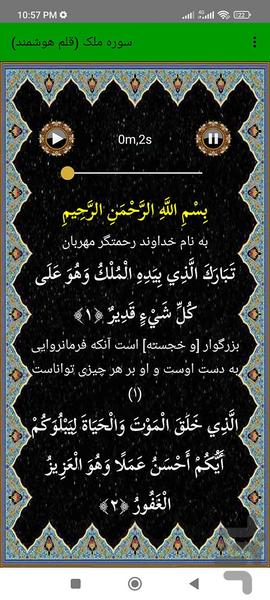 10:57 PM
4G
22
سوره ملک (قلم هوشمند)
0m,2s
بِسْمِ اللَّهِ الرَّحْمَنِ الرَّحِيمِ
به نام خداوند رحمتگر مهربان
تَبَارَكَ الَّذِي بِيَدِهِ الْمُلْكُ وَهُوَ عَلَى
كُلِّ شَيْءٍ قَدِيرٌ ﴿١﴾
بزرگوار [و خجسته] است آنکه فرمانروایی
به دست اوست و او بر هر چیزی تواناست
(۱)
الَّذِي خَلَقَ الْمَوْتَ وَالْحَيَاةَ لِيَبْلُوَكُمْ
أَيُّكُمْ أَحْسَنُ عَمَلًا وَهُوَ الْعَزِيزُ
الْغَفُورُ ﴿٢﴾